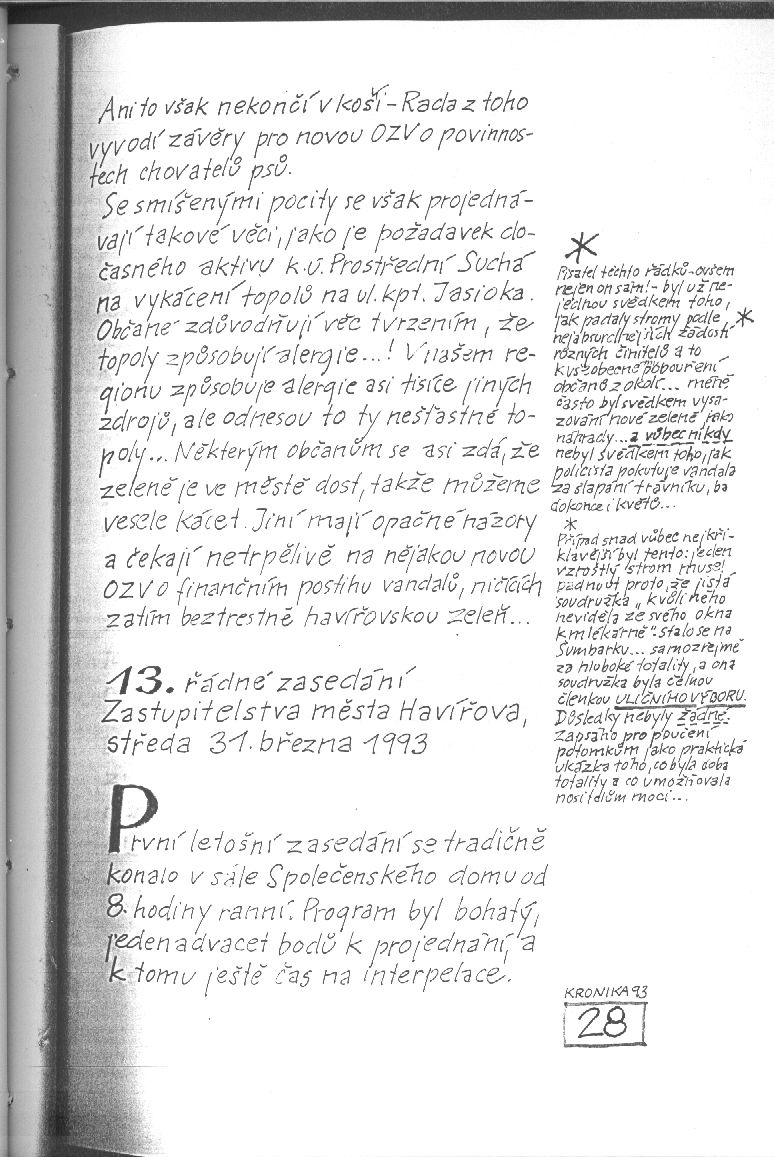 Ani to však nekončí v koši - Rada z toho
vyvodí závěry pro novou OZV o povinnos-
tech chovatelů psů.
Se smíšenými pocity se však projedná-
vají takové věci, jako je požadavek do-
časného aktivu k.ú. Prostřední Suchá
na vykácení topolů na ul. kpt. Jasioka.
Občané zdůvodňují věc tvrzením, že
topoly způsobují alergie...! V našem re-
gionu způsobuje alergie asi tisíce jiných
zdrojů, ale odnesou to ty nešťastné to-
poly... Některým občanům se asi zdá, že
zeleně je ve městě dost, takže můžeme
vesele kácet. Jiní mají opačné názory
a čekají netrpělivě na nějakou novou
OZV o finančním postihu vandalů, ničících
zatím beztrestně havířovskou zeleň...
13. řádné zasedání
Zastupitelstva města Havířova,
středa 31. března 1993
První letošní zasedání se tradičně
konalo v sále Společenského domu od
8. hodiny ranní. Program byl bohatý,
jedenadvacet bodů k projednání, a
k tomu ještě čas na interpelace.
*
Pisatel těchto řádků - ovšem
nejen on sám! - byl už ne-
jednou svědkem toho,
jak padaly stromy podle *
nejabsurdnějších žádostí
různých činitelů a to
k všeobecné pobouření
občanů z okolí... méně
často byl svědkem vysa-
zování nové zeleně jako
náhrady... a vůbec nikdy
nebyl svědkem toho, jak
policista pokutuje vandala
za šlapání trávníku, ba
dokonce i květů...
*
Případ snad vůbec nejkři-
klavější byl tento: jeden
vzrostlý strom musel
padnout proto, že jistá
soudružka „kvůli něho
neviděla ze svého okna
k mlékárně". Stalo se na
Šumbarku... samozřejmě
za hluboké totality, a ona
soudružka byla čelnou
členkou ULIČNÍHO VÝBORU.
Důsledky nebyly žádné.
Zapsáno pro poučení
potomkům jako praktická
ukázka toho, co byla doba
totality a co umožňovala
nositelům moci...
KRONIKA 93
28